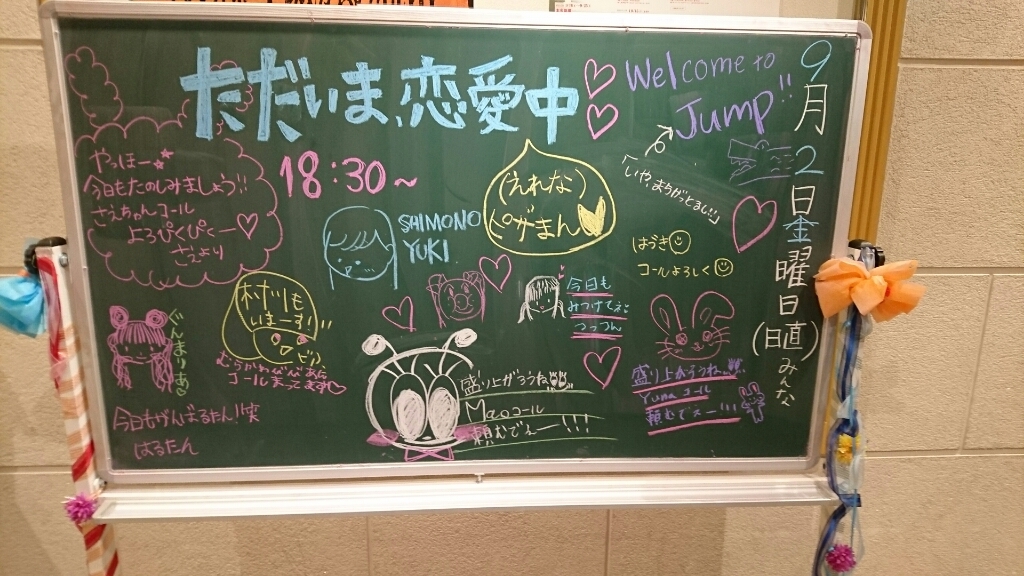 ただいま恋愛中
Welcome to
Jump!!
「いや、まちがっとるし!!」
9月2日金曜日(日直)みんな
18:30~
やっほー
今日もたのしみましょう!!
さっちゃんコール
よろぴくぴくー♡
さえぴり
SHIMONO
YUKI
(えれな)
ピザまん
はづき☺
コールよろしく☺
今日も
みつけてね
つっつん
村川も
いまーす!
むらかわびびあん
コールまってます♡
ぐんまりあ♡
今日もがんばるたん!!笑
はるたん
盛り上がろうね
Maoコール
頼むでぇー!!!
盛り上がろうね
Yunaコール
頼むでぇー!!!